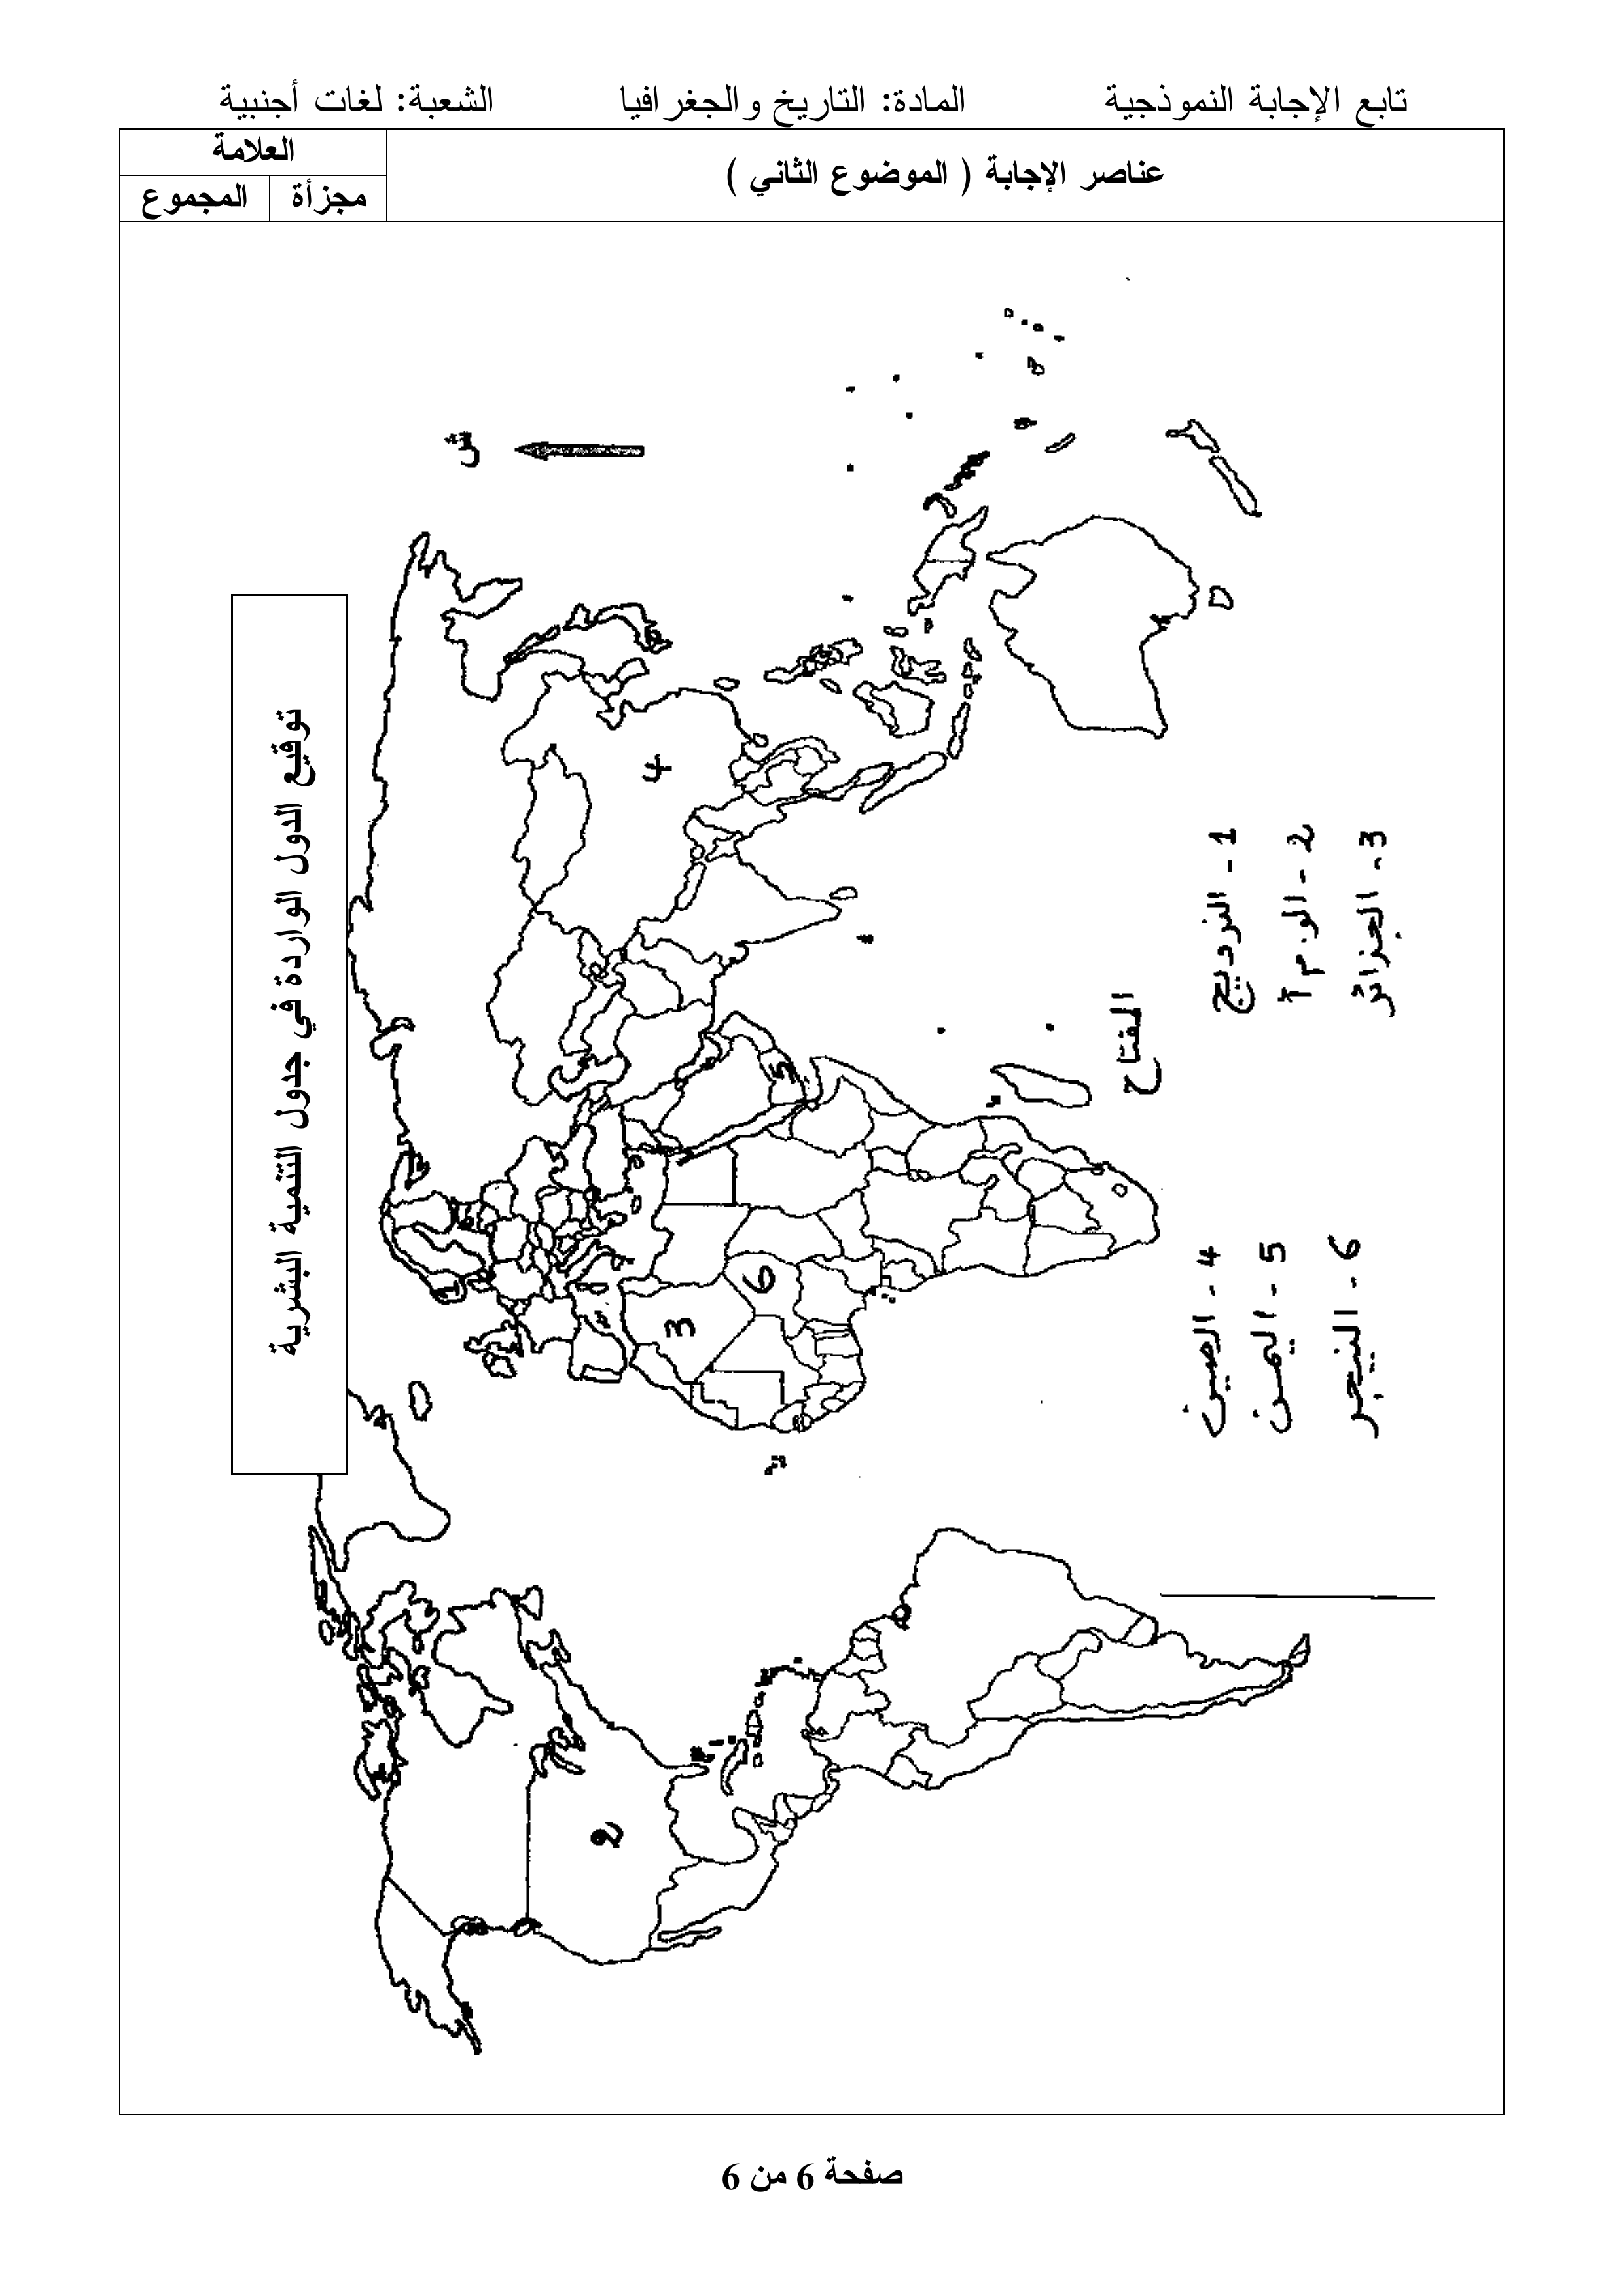 تابع الإجابة النموذجية المادة: التاريخ والجغرافيا الشعبة: لغات أجنبية
عناصر الإجابة ( الموضوع الثاني )
العلامة
مجزأة المجموع
توقيع الدول الواردة في جدول التنمية البشرية
ش
1
2
3
4
5
6
المفتاح
1 - النرويج
2 - الو م أ
3 - الجزائر
4 - الصين
5 - اليمن
6 - النيجر
صفحة 6 من 6